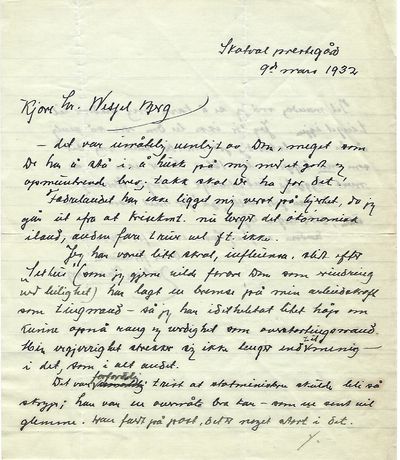 Skatval prestegård
9de mars 1932
Kjære hr. Wessel Berg
— det var umåtelig venligt av Dem, meget som
De har å stå i, å huske på mig med et godt og
opmuntrende brev. Takk skal De ha for det!
Fedrelandet har ikke ligget mig verst på hjertet, da jeg
går ut fra at krisekom. nu berger det økonomisk
iland, anden fare truer vel ft. ikke.
Jeg har været litt skral, influensa. Slit efter
"Jesus (som jeg gjerne vilde Dem som
ved leilighet) har lagt en bremse på min arbeidskraft
som lingmand — så jeg har idetheletatt litet håp om
kunne opnå rang og verdighet som overstortingsmand.
Min ærgjerrighet strekker sig ikke lenger end til menig —
i det, som i alt andet.
Det var forferdelig trist at statministeren skulde bli så
stryg; han var en overmåte bra kar — som en sent vil
glemme. Han færdt på post, det er noget stort i det.